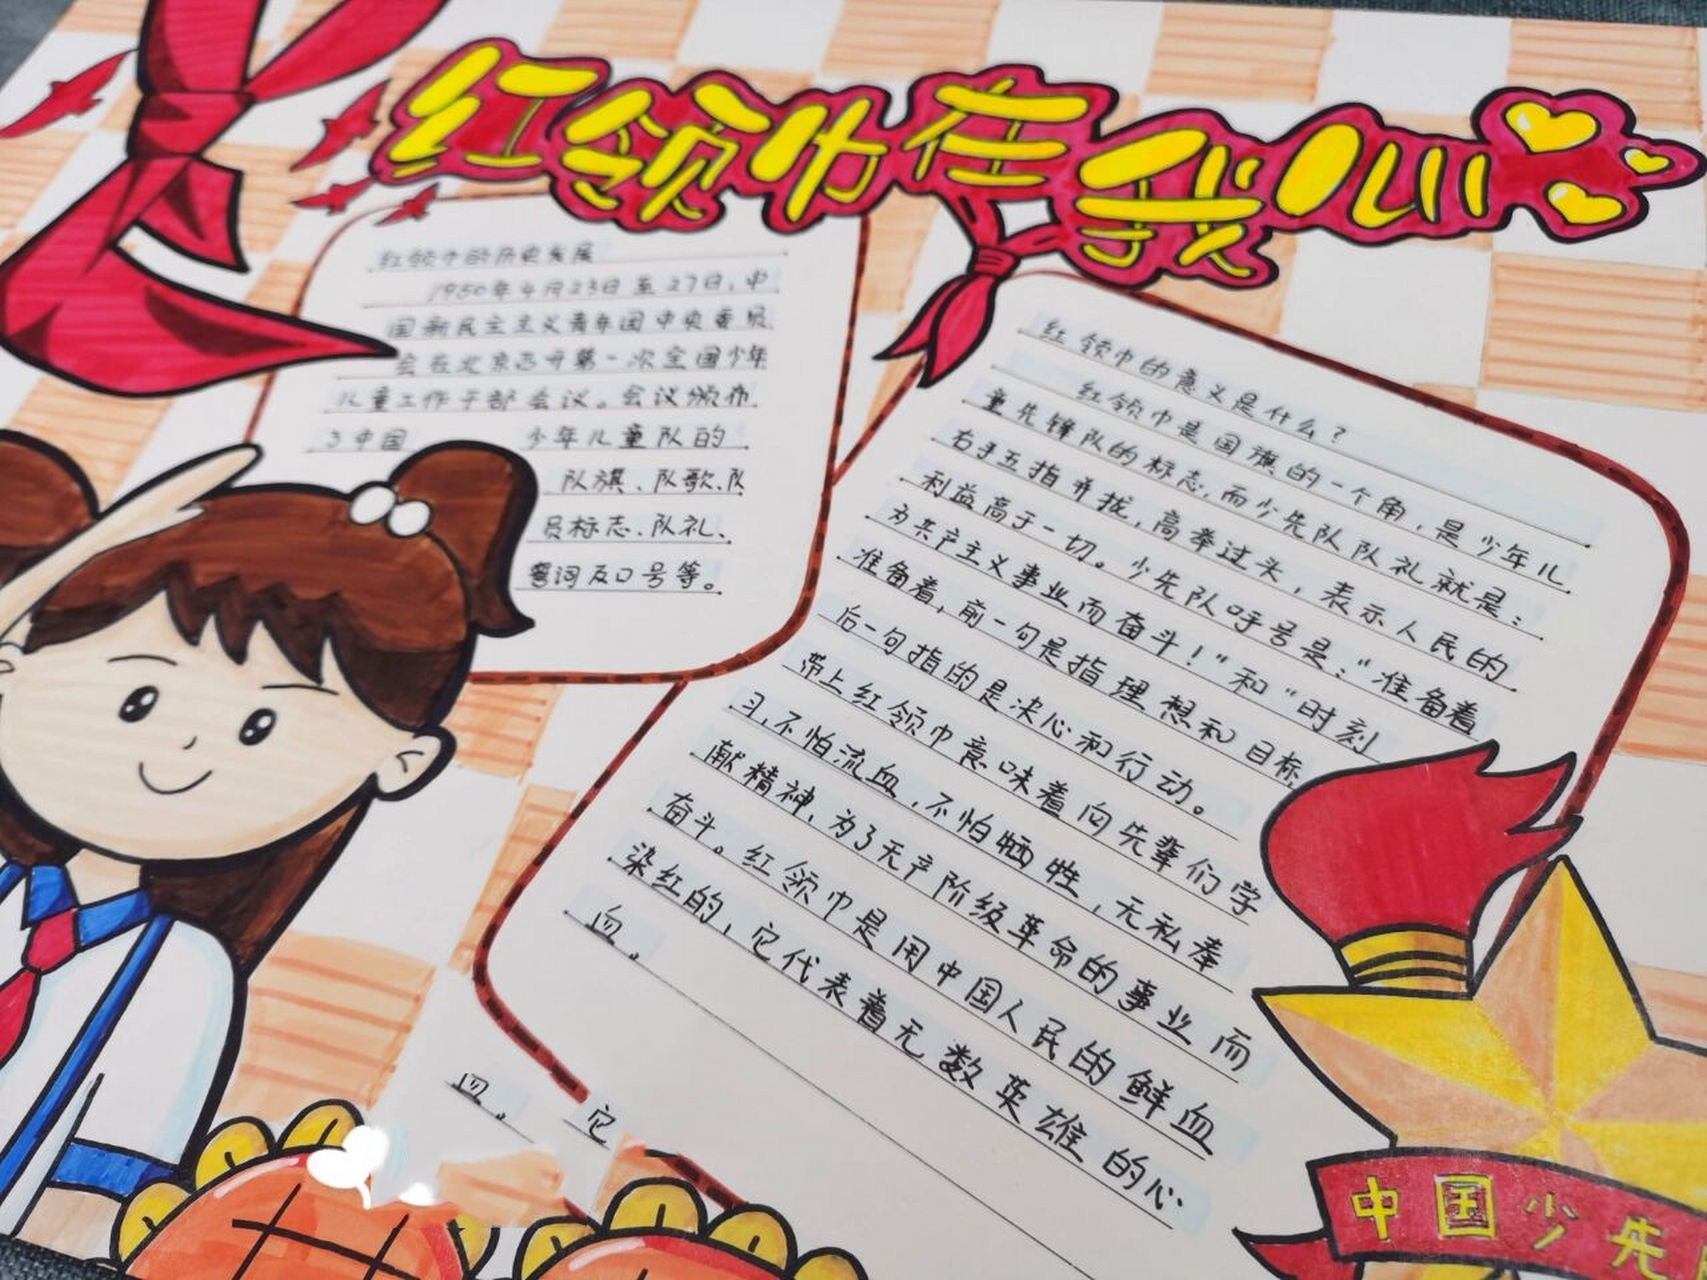 红领巾在我心
红领巾的历史发展
1950年4月23日至27日,中
国新民主主义青年团中央委员
会在北京召开第一次全国少年
儿童工作干部会议。会议颁布
了中国 少年儿童队的
队旗、队歌、队
员标志、队礼、
誓词及口号等。
红领巾的意义是什么?
红领巾是国旗的一个角,是少年儿
童先锋队的标志,而少先队队礼就是:
右手五指并拢,高举过头,表示人民的
利益高于一切。少先队呼号是:“准备着
为共产主义事业而奋斗!”和“时刻
准备着,前一句是指理想和目标,
后一句指的是决心和行动。
带上红领巾意味着向先辈们学
习,不怕流血,不怕牺牲,无私奉
献精神,为了无产阶级革命的事业而
奋斗。红领巾是用中国人民的鲜血
染红的,它代表着无数英雄的心
血。
血。 它
中国少先